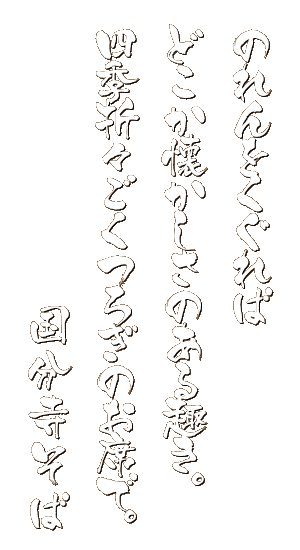 のれんをくぐれば
どこか懐かしさのある趣で。
四季折々でくつろぎのお席で。
国分寺そば